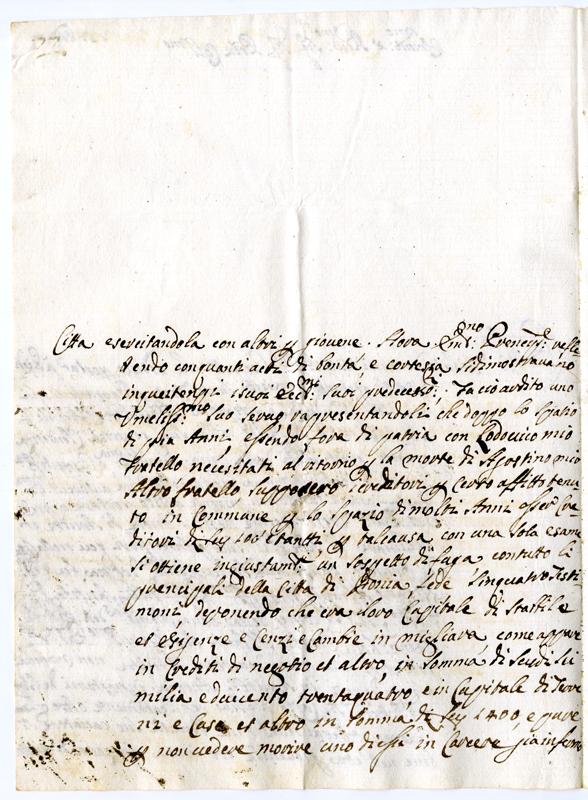 Citta esercitandola con altri p giovene. Hora Em.mo Prencipe: velle
dendo con quanti acti di bonta, e cortesia si dimostravano
in quei tempi i suoi Ecc.mi suoi predecessori, fa cio ardito uno
Umeliss.mo suo servo rappresentandoli che doppo lo spatio
di piu Anni essendo fora di patria con Lodovico mio
fratello necesitati al ritorno p la morte di Agostino mio
Altro fratello supposero i creditori p certo affitto tenu
to in Commune p lo spatio di molti Anni esser Cre
ditori di 100 e tanti p tal causa con una sola esame
si ottiene ingiustam.te un sospetto di fuga contutto li
prencipali della Citta di fede in quatro Testi
moni deponendo che era il loro Capitale di Stabile
et esigenze e Cenzi e Cambie in migliara come appare
in Crediti di negotio et altro in somma di Scudi Sei
milia e ducento trentaquatro, e in Capitale di Terre
ni e Case et altro in somma di 1400, e pure
p non vedere morire uno di essi in Carcere gia infermo